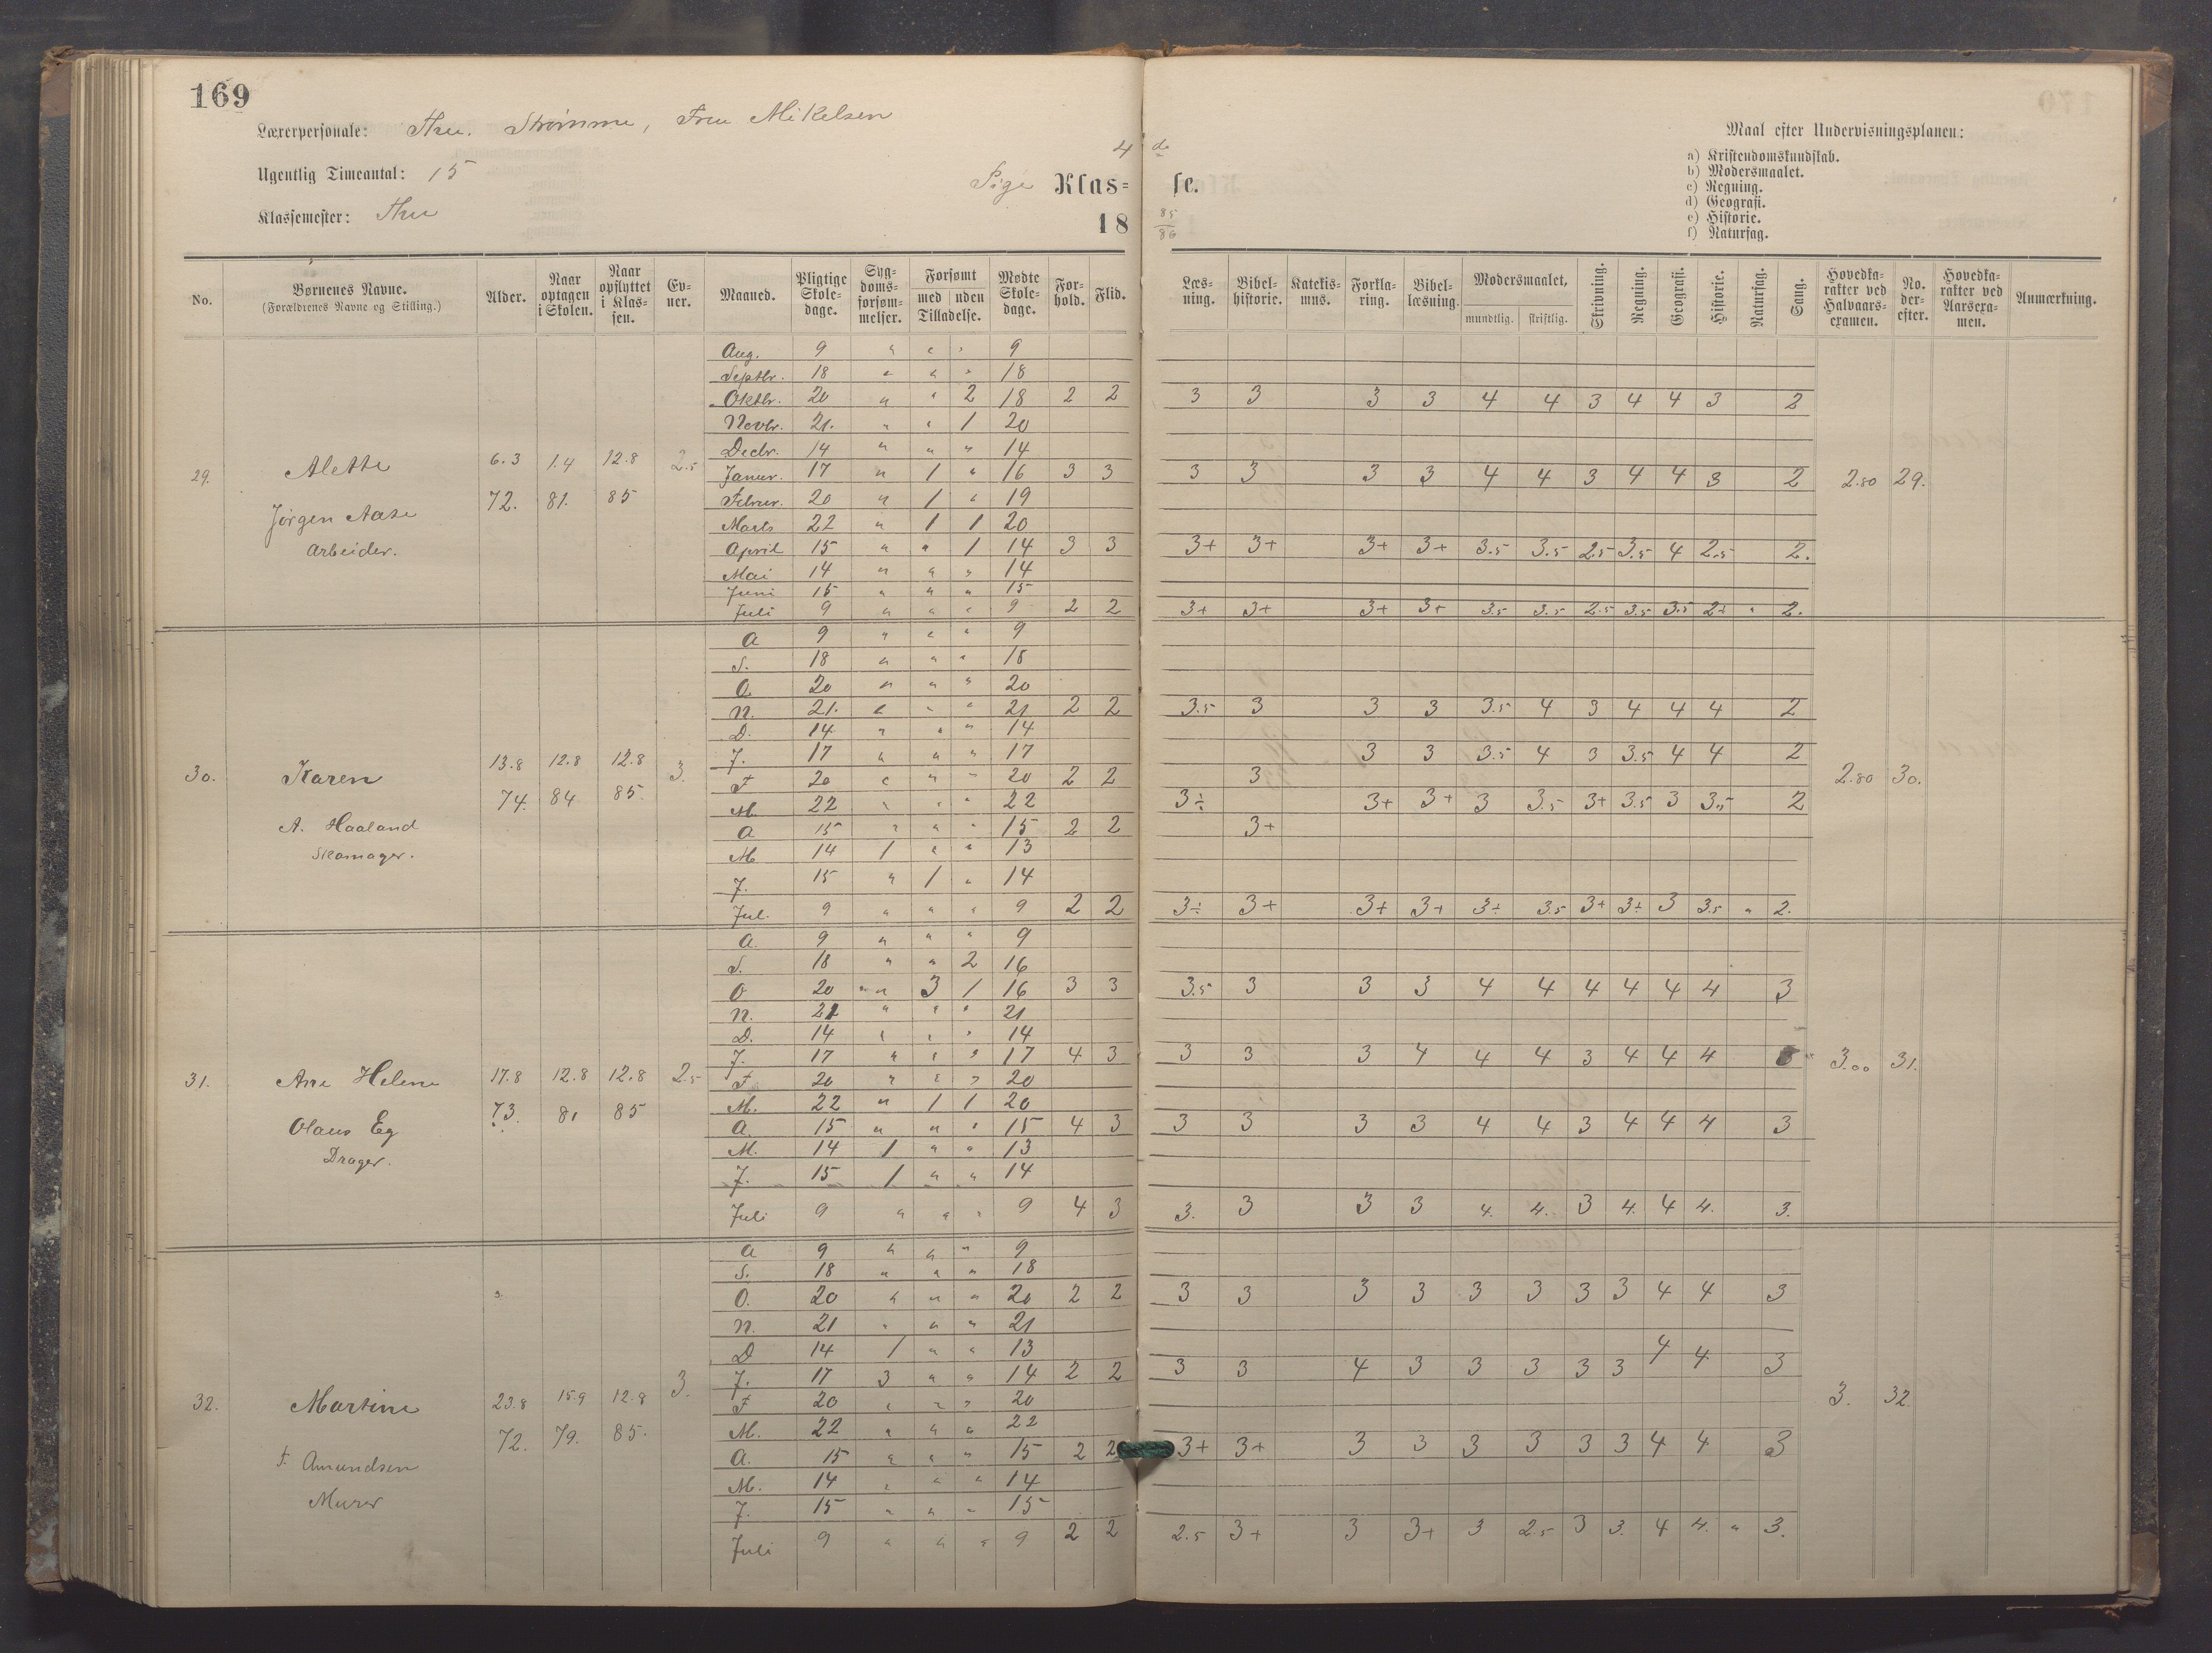 169
Lærerpersonale: Thu. Strømme, Fru Mikelsen
Ugentlig Timeantal: 15
Klassemester: Thu
4 de
Pige Klas= se.
18 85/86
Maal efter Undervisningsplanen:
a) Kristendomskundskab.
b) Modersmaalet.
c) Regning.
d) Geografi.
e) Historie.
f) Naturfag.
No. | Børnenes Navne. (Forældrenes Navne og Stilling.) | Alder. | Naar optagen i Skolen. | Naar opflyttet i Klassen. | Evner. | Maaned. | Pligtige Skoledage. | Sygdomsforsømmelser. | Forsømt med / uden Tilladelse. | Mødte Skoledage. | Forhold. | Flid. | Læsning. | Bibelhistorie. | Katekismus. | Forklaring. | Bibellæsning. | Modersmaalet, mundtlig. / skriftlig. | Skrivning. | Regning. | Geografi. | Historie. | Naturfag. | Sang. | Hovedkarakter ved Halvaarsexamen. | No. derefter. | Hovedkarakter ved Aarsexamen. | Anmærkning.
29. Alette 6.3 72. 1.4 81. 12.8 85 2.5 2.80 29.
Jørgen Aase
Arbeider.
Aug. 9 " " " 9
Septbr. 18 " " " 18
Oktbr. 20 " " 2 18 2 2 3 3 3 3 4 4 3 4 4 3 2
Novbr. 21. " " 1 20
Decbr. 14 " " " 14
Januar. 17 " 1 " 16 3 3 3 3 3 3 4 4 3 4 4 3 2
Februar. 20 " 1 " 19
Marts 22 " 1 1 20
April 15 " " 1 14 3 3 3+ 3+ 3+ 3+ 3.5 3.5 2.5 3.5 4 2.5 2.
Mai 14 " " " 14
Juni 15 " " " 15
Juli 9 " " " 9 2 2 3+ 3+ 3+ 3+ 3.5 3.5 2.5 3.5 3.5 2+ " 2.
30. Karen 13.8 74. 12.8 84 12.8 85. 3. 2.80 30.
A. Haaland
Skomager.
A 9 " " " 9
S. 18 " " " 18
O 20 " " " 20
N. 21. " " " 21 2 2 3.5 3 3 3 3.5 4 3 4 4 4 2
D. 14 " " " 14
J. 17 " " " 17 3 3 3.5 4 3 3.5 4 4 2
F 20 " " " 20 2 2 3
M. 22 " " " 22 3÷ 3+ 3+ 3 3.5 3+ 3.5 3 3.5 2
A 15 " " " 15 2 2 3+
M 14 1 " " 13
J. 15 " 1 " 14
Jul. 9 " " " 9 2 2 3÷ 3+ 3+ 3+ 3+ 3.5 3+ 3+ 3 3.5 " 2.
31. Ane Helene 17.8 73. 12.8 81 12.8 85 2.5 3.00 31.
Olaus Eg
Drager.
A. 9 " " " 9
S. 18 " " 2 16
O 20 " " 3 1 16 3 3 3.5 3 3 3 4 4 4 4 4 4 3
N. 21 " " " 21
D. 14 " " " 14
J. 17 " " " 17 4 3 3 3 3 4 4 4 3 4 4 4
F 20 " " " 20
M. 22 " 1 1 20
A. 15 " " " 15 4 3 3 3 3 3 4 4 3 4 4 4 3
M. 14 1 " " 13
J. 15 1 " " 14
Juli 9 " " " 9 4 3 3. 3 3 3 4. 4. 3 4. 4 4. 3.
32. Martine 23.8 72. 15.9 79. 12.8 85. 3. 3. 32.
F. Amundsen
Murer
A 9 " " " 9
S. 18 " " " 18
O. 20 " " " 20 2 2 3 3 3 3 3 3 3 3 4 4 3
N. 21 " " " 21
D 14 1 " " 13
J. 17 3 " " 14 2 2 3 3 4 3 3 3 3 3 4 4 3
F 20 " " " 20
M. 22 " " " 22
A. 15 " " " 15 2 2 3+ 3+ 3 3 3 3 3 3 4 4 3
M. 14 " " " 14
J. 15 " " " 15
Juli 9 " " " 9 2 2 2.5 3+ 3 3+ 3 2.5 3 3. 4 4. " 3.